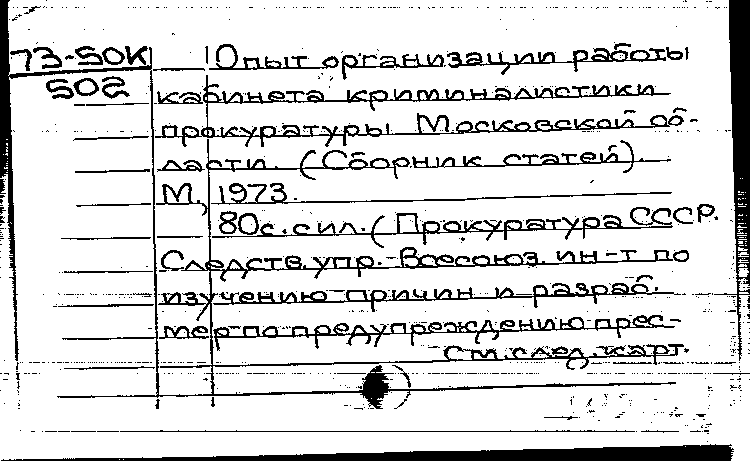 73-50К Опыт организации работы
502 кабинета криминалистики
прокуратуры Московской об-
ласти. (Сборник статей).
М., 1973.
80с. с ил. (Прокуратура СССР.
Следств. упр. Всесоюз. ин-т по
изучению причин и разраб.
мер по предупреждению прес-
См. след. карт.